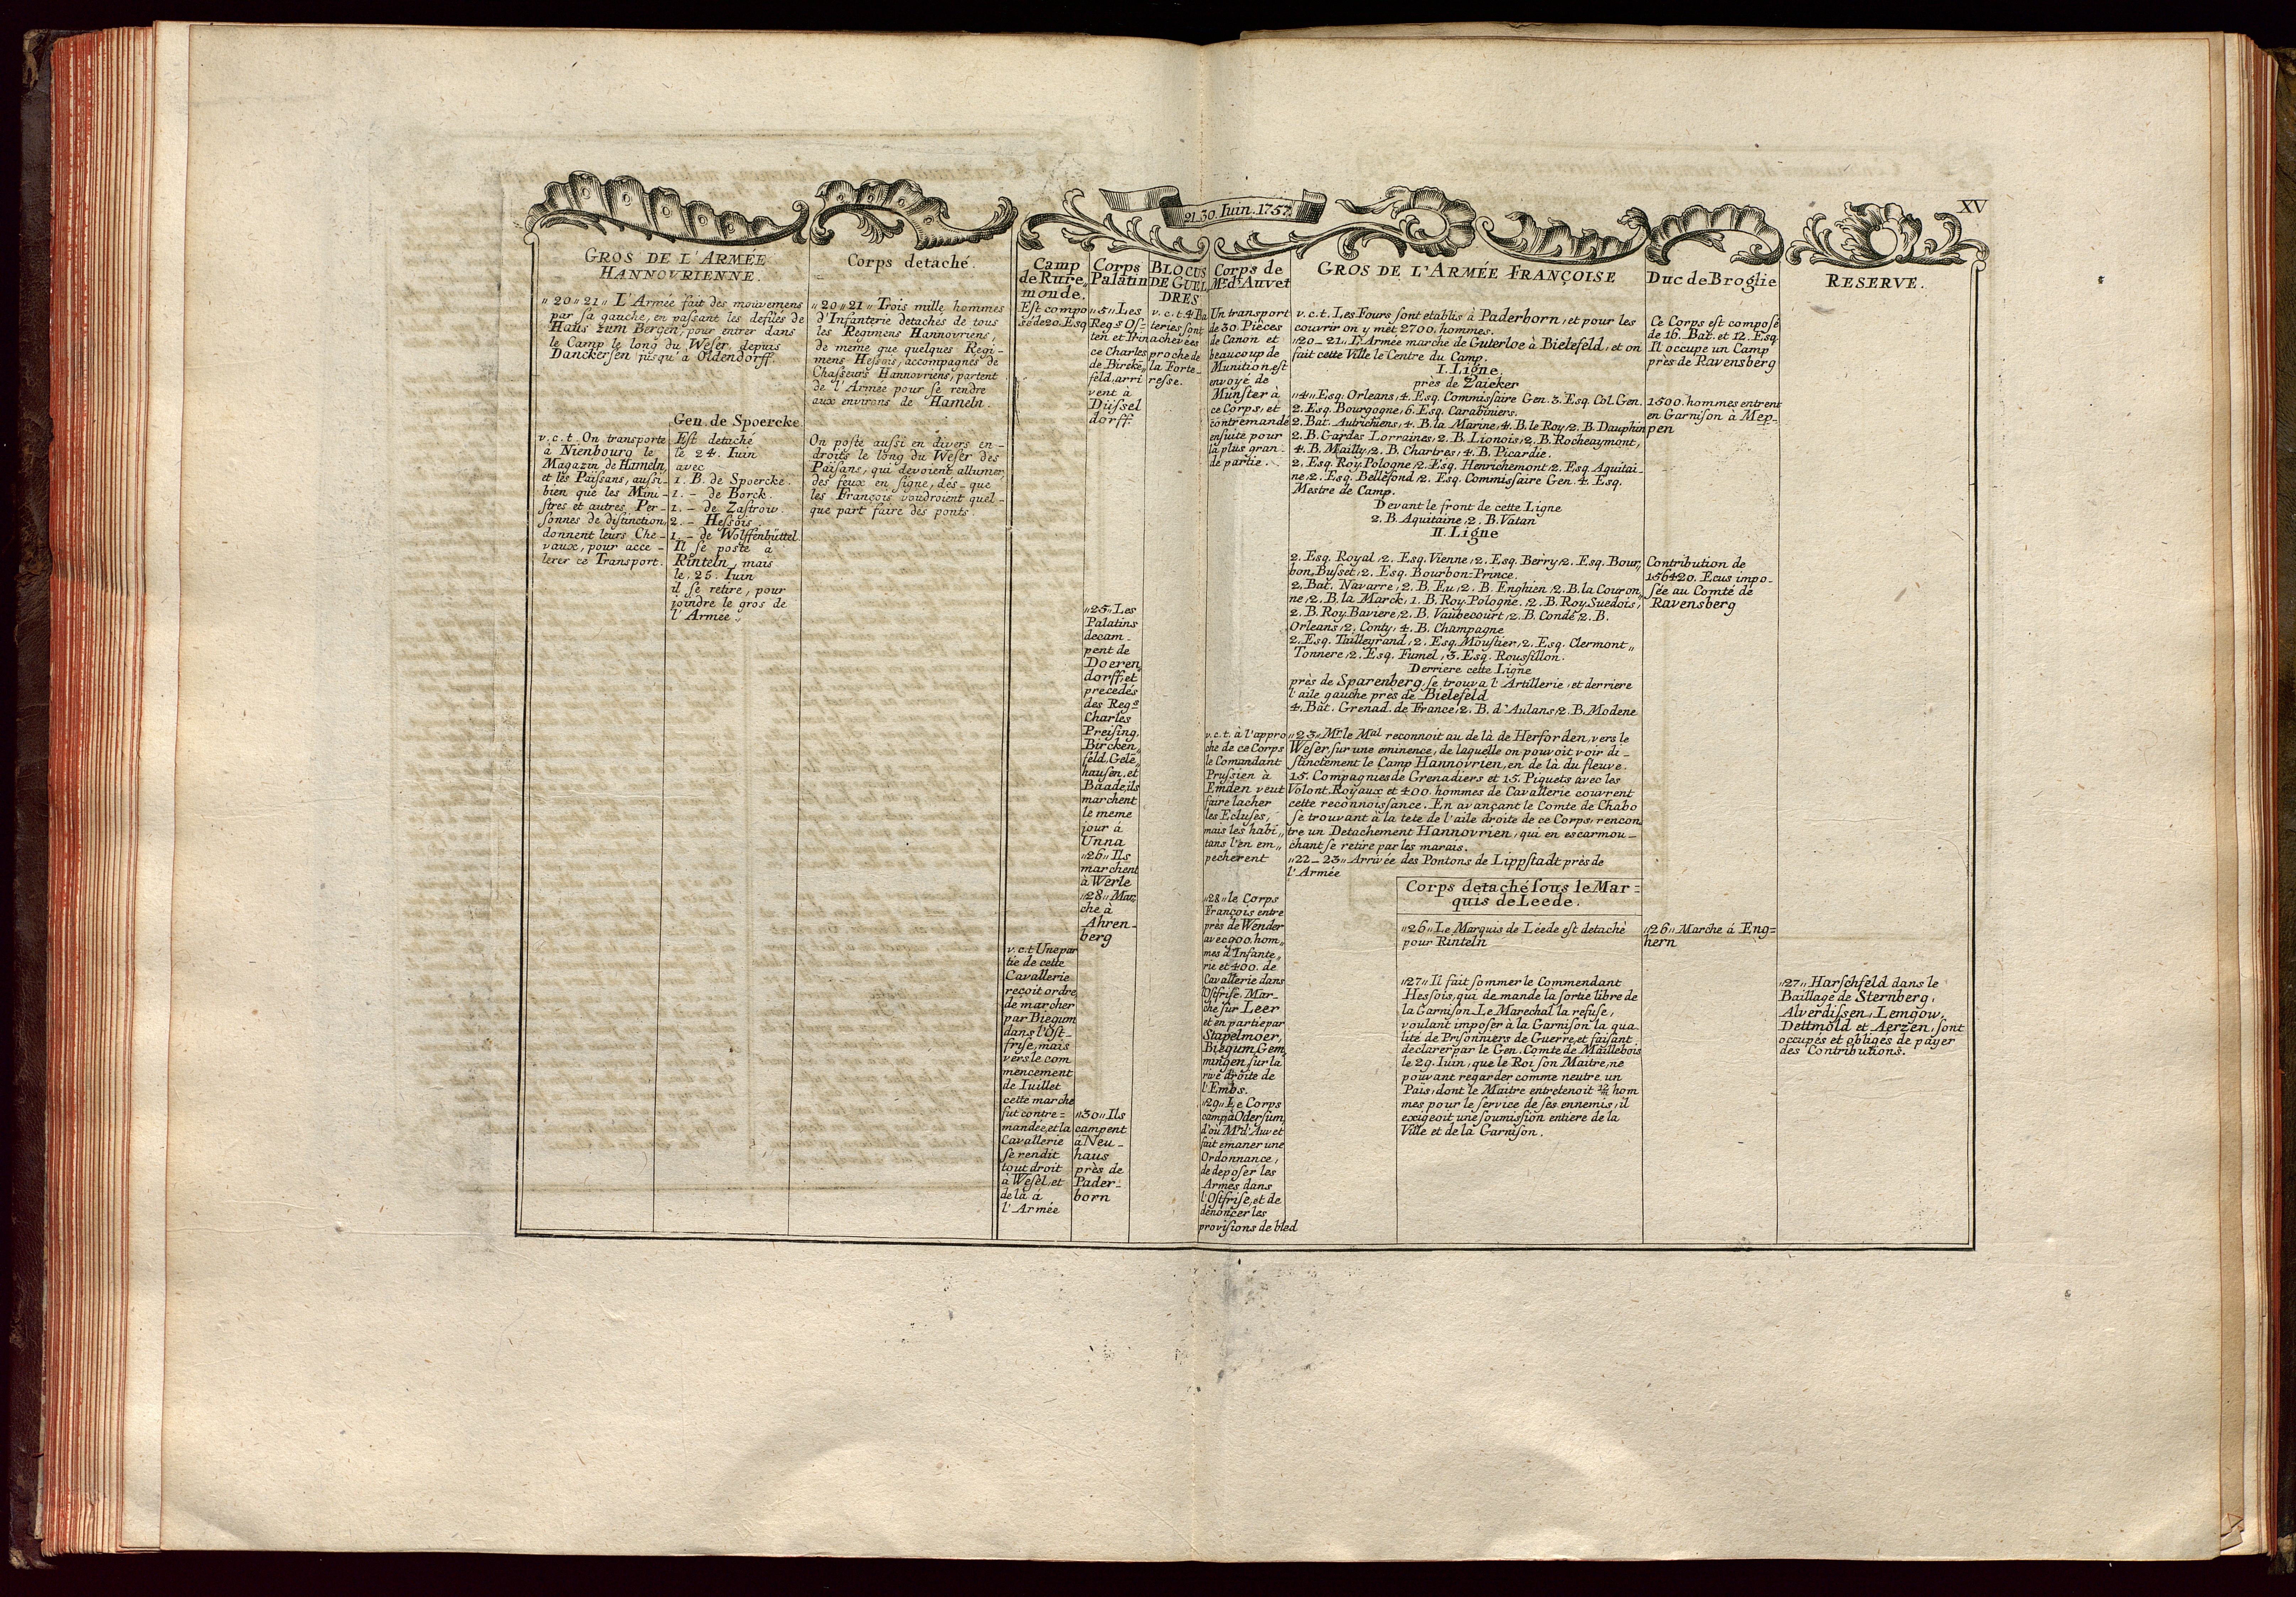 21.30. Iuin. 1757.
XV
GROS DE L'ARMÉE
HANNOVRIENNE.
„20„21„ L'Armée fait des mouvemens
par sa gauche, en passant les defilés de
Haus zum Bergen, pour entrer dans
le Camp le long du Weser, depuis
Danckersen jusqu'à Oldendorff.
v.c.t. On transporte
à Nienbourg le
Magazin de Hameln,
et les Païsans, aussi-
bien que les Mini-
stres et autres Per-
sonnes de distinction,
donnent leurs Che-
vaux, pour acce-
lerer ce Transport.
Gen. de Spoercke.
Est detaché
le 24. Iuin
avec
1. B. de Spoercke.
1. - de Borck.
1. - de Zastrow.
2. - Hessois.
1. - de Wolffenbüttel.
Il se poste à
Rinteln, mais
le 25. Iuin
il se retire, pour
joindre le gros de
l'Armée.
Corps detaché.
„20„21„ Trois mille hommes
d'Infanterie detachés de tous
les Regimens Hannovriens,
de meme que quelques Regi-
mens Hessois, accompagnés de
Chasseurs Hannovriens, partent
de l'Armée pour se rendre
aux environs de Hameln.
On poste aussi en divers en-
droits le long du Weser des
Païsans, qui devoient allumer
des feux en signe, dès-que
les François voudroient quel-
que part faire des ponts
Camp
de Rure„
monde.
Est compo
sé de 20. Esq
v.c.t Une par
tie de cette
Cavallerie
reçoit ordre
de marcher
par Biegum
dans l'Ost-
frise, mais
vers le com
mencement
de Iuillet
cette marche
fut contre=
mandée, et la
Cavallerie
se rendit
tout droit
à Wesel, et
de là à
l'Armée
Corps
Palatin
„5„ Les
Regs Os-
ten et Prin
ce Charles
de Bircke„
feld, arri
vent à
Düssel
dorff.
„25„ Les
Palatins
decam-
pent de
Doeren„
dorff, et
precedés
des Regs
Charles
Preising,
Bircken„
feld, Gele„
hausen, et
Baade, ils
marchent
le meme
jour à
Unna
„26„ Ils
marchent
à Werle
„28„ Mar„
che à
Ahren-
berg
„30„ Ils
campent
à Neu-
haus
près de
Pader-
born
BLOCUS
DE GUEL
DRES
v.c.t. 4 Ba
teries sont
achevées
proche de
la Forte-
resse.
Corps de
Mr. d'Auvet
Un transport
de 30. Pièces
de Canon et
beaucoup de
Munition, est
envoyé de
Münster à
ce Corps, et
contremandé
ensuite pour
la plus gran-
de partie.
v.c.t. à l'appro
che de ce Corps
le Comandant
Prussien à
Emden veut
faire lacher
les Ecluses,
mais les habi„
tans l'en em„
pecherent
„28„ le Corps
François entre
près de Wender
avec 900. hom„
mes d'Infante„
rie et 400. de
Cavallerie dans
l'Ostfrise. Mar-
che sur Leer
et en partie par
Stapelmoer,
Biegum, Gem„
mingen, sur la
rive droite de
l'Embs.
„29„ Le Corps
campa à Odersum,
d'où Mr. d'Auvet
fait emaner une
Ordonnance,
de deposer les
Armes dans
l'Ostfrise, et de
denoncer les
provisions de bled
GROS DE L'ARMÉE FRANÇOISE
v.c.t. Les Fours sont etablis à Paderborn, et pour les
couvrir on y met 2700. hommes.
„20-21„ L'Armée marche de Guterloe à Bielefeld, et on
fait cette Ville le Centre du Camp.
I. Ligne.
près de Zaicker
„4„ Esq. Orleans, 4. Esq. Commissaire Gen. 3. Esq. Col. Gen.
2. Esq. Bourgogne, 6. Esq. Carabiniers.
2. Bat. Autrichiens, 4. B. la Marine, 4. B. le Roy, 2. B. Dauphin
2. B. Gardes Lorraines, 2. B. Lionois, 2. B. Rocheaymont,
4. B. Mailly, 2. B. Chartres, 4. B. Picardie.
2. Esq. Roy Pologne, 2. Esq. Henrichemont, 2. Esq. Aquitai-
ne, 2. Esq. Bellefond, 2. Esq. Commissaire Gen. 4. Esq.
Mestre de Camp.
Devant le front de cette Ligne
2. B. Aquitaine, 2. B. Vatan
II. Ligne
2. Esq. Royal, 2. Esq. Vienne, 2. Esq. Berry, 2. Esq. Bour„
bon Busset, 2. Esq. Bourbon-Prince.
2. Bat. Navarre, 2. B. Eu, 2. B. Enghien, 2. B. la Couron„
ne, 2. B. la Marck, 1. B. Roy Pologne, 2. B. Roy Suedois,
2. B. Roy Baviere, 2. B. Vaubecourt, 2. B. Condé, 2. B.
Orleans, 2. Conty, 4. B. Champagne
2. Esq. Tailleyrand, 2. Esq. Moustier, 2. Esq. Clermont„
Tonnere, 2. Esq. Fumel, 3. Esq. Roussillon.
Derriere cette Ligne
près de Sparenberg, se trouva l'Artillerie, et derriere
l'aile gauche près de Bielefeld
4. Bat. Grenad. de France, 2. B. d'Aulans, 2. B. Modene
„23„ Mr. le Mal reconnoit au de là de Herforden, vers le
Weser, sur une eminence, de laquelle on pouvoit voir di-
stinctement le Camp Hannovrien, en de là du fleuve.
15. Compagnies de Grenadiers et 15. Piquets avec les
Volont. Royaux et 400. hommes de Cavallerie couvrent
cette reconnoissance. En avançant le Comte de Chabo
se trouvant à la tete de l'aile droite de ce Corps, rencon
tre un Detachement Hannovrien, qui en escarmou-
chant se retire par les marais.
„22-23„ Arrivée des Pontons de Lippstadt près de
l'Armée
Corps detaché sous le Mar=
quis de Leede.
„26„ Le Marquis de Léede est detaché
pour Rinteln
„27„ Il fait sommer le Commendant
Hessois, qui de mande la sortie libre de
la Garnison. Le Marechal la refuse,
voulant imposer à la Garnison la qua
lité de Prisonniers de Guerre, et faisant
declarer par le Gen. Comte de Maillebois
le 29. Iuin, que le Roi son Maitre, ne
pouvant regarder comme neutre un
Païs, dont le Maitre entretenoit 12/m hom
mes pour le service de ses ennemis, il
exigeoit une soumission entiere de la
Ville et de la Garnison.
Duc de Broglie
Ce Corps est composé
de 16. Bat. et 12. Esq.
Il occupe un Camp
près de Ravensberg
1500. hommes entrent
en Garnison à Mep-
pen
Contribution de
156420. Ecus impo-
sée au Comté de
Ravensberg
„26„ Marche à Eng=
hern
RESERVE.
„27„ Harschfeld dans le
Baillage de Sternberg,
Alverdissen, Lemgow,
Dettmold et Aerzen, sont
occupés et obligés de payer
des Contributions.